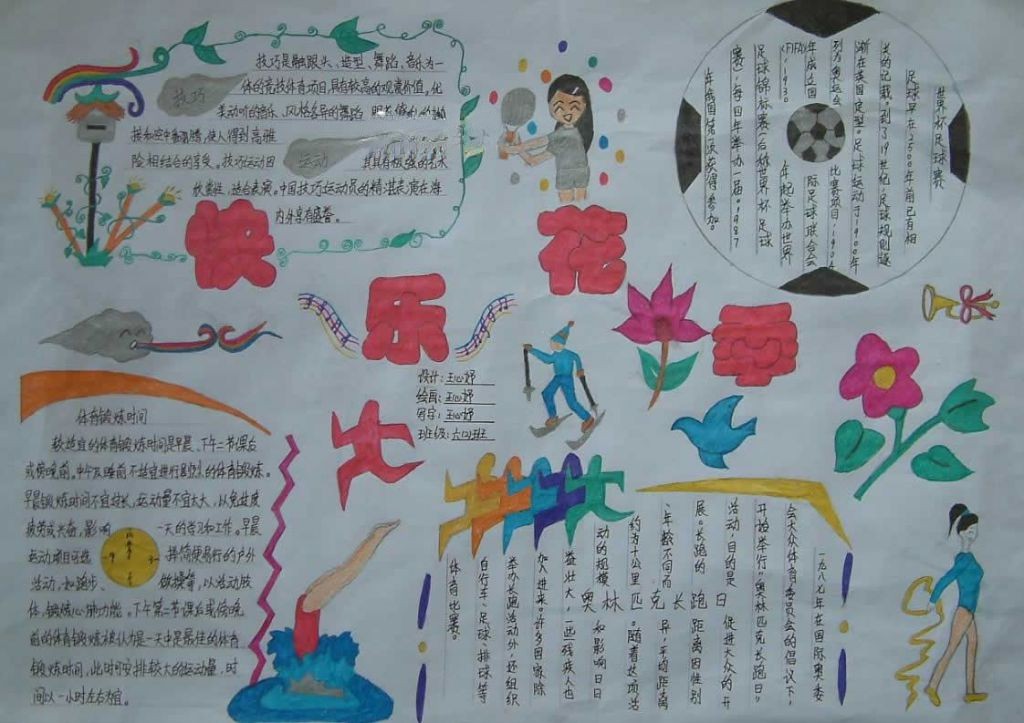 技巧是融跟头、造型、舞蹈、音乐为一
体的竞技体育项目,具有较高的观赏价值,优
美动听的音乐、风格各异的舞蹈
技巧
险相结合的享受。技巧运动因
运动
其具有极强的艺术
欣赏性,适合表演。中国技巧运动员的精湛表演在海
内外享有盛誉。
快
乐
花
世界杯足球赛
足球早在2500年前已有相
类的记载,到了19世纪,足球规则逐
渐在英国定型。足球运动于1900年
列为奥运会
比赛项目,1904
年成立国
际足球联合会
(FIFA),1930
年起举办世界
足球锦标赛(后改世界杯足球
赛),每四年举办一届。1987
设计:王心妤
绘画:王心妤
书写:王心妤
班级:六四班
体育锻炼时间
较适宜的体育锻炼时间是早晨、下午二节课后
或傍晚前。中午及睡前不适宜进行剧烈的体育锻炼。
早晨锻炼时间不宜过长,运动量不宜太大,以免过度
疲劳或兴奋,影响
一天的学习和工作。早晨
运动项目可选
择简便易行的户外
活动,如跑步、
做操等,以活动肢
体,锻炼心肺功能。下午第二节课后或傍晚
前的体育锻炼被认为是一天中最佳的体育
锻炼时间,此时可安排较大的运动量,时
间以一小时左右为宜。
奥林匹克长跑日
一九八七年在国际奥委
会大众体育委员会的倡议下,
开始举行“奥林匹克长跑日”
活动,目的是
促进大众的开
展。长跑的
距离因性别
、年龄不同而
异,平均距离
约为十公里
。随着这项活
动的规模
和影响日日
益壮大,一些残疾人也
加入进来。许多国家除
举办长跑活动外,还组织
自行车、足球、排球等
体育比赛。